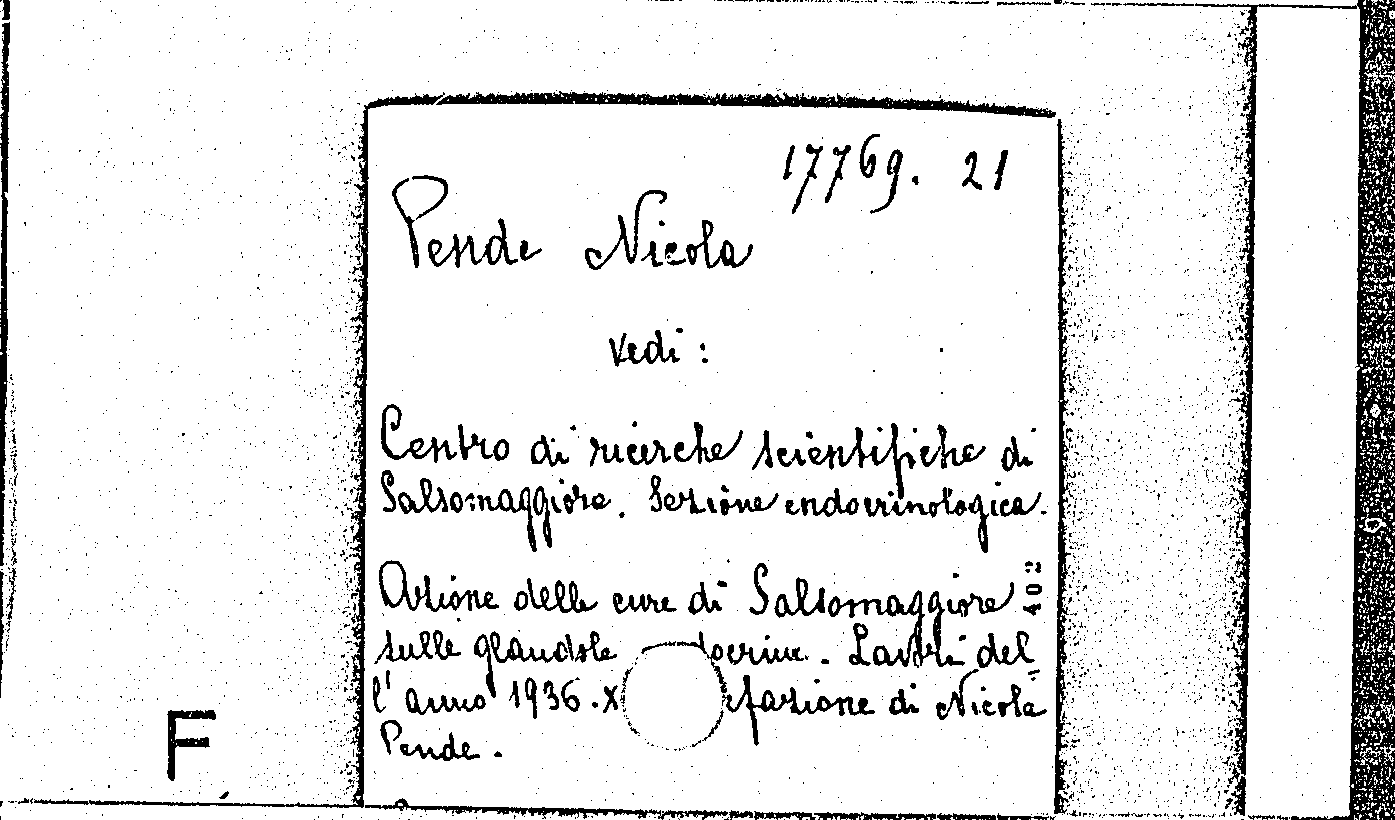 17769. 21
Pende Nicola
Vedi :
Centro di ricerche scientifiche di
Salsomaggiore. Sezione endocrinologica.
Azione delle cure di Salsomaggiore
402
sulle glandole docrine. Lavori del
l'anno 1936.X efazione di Nicola
Pende.
F